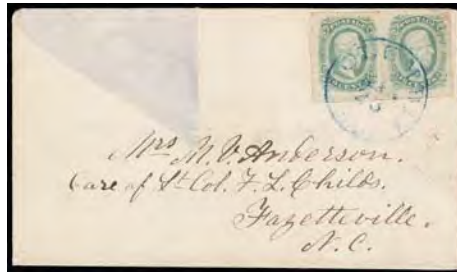 Mrs M. V. Anderson.
Care of Lt Col. F. L. Childs.
Fayetteville.
N. C.